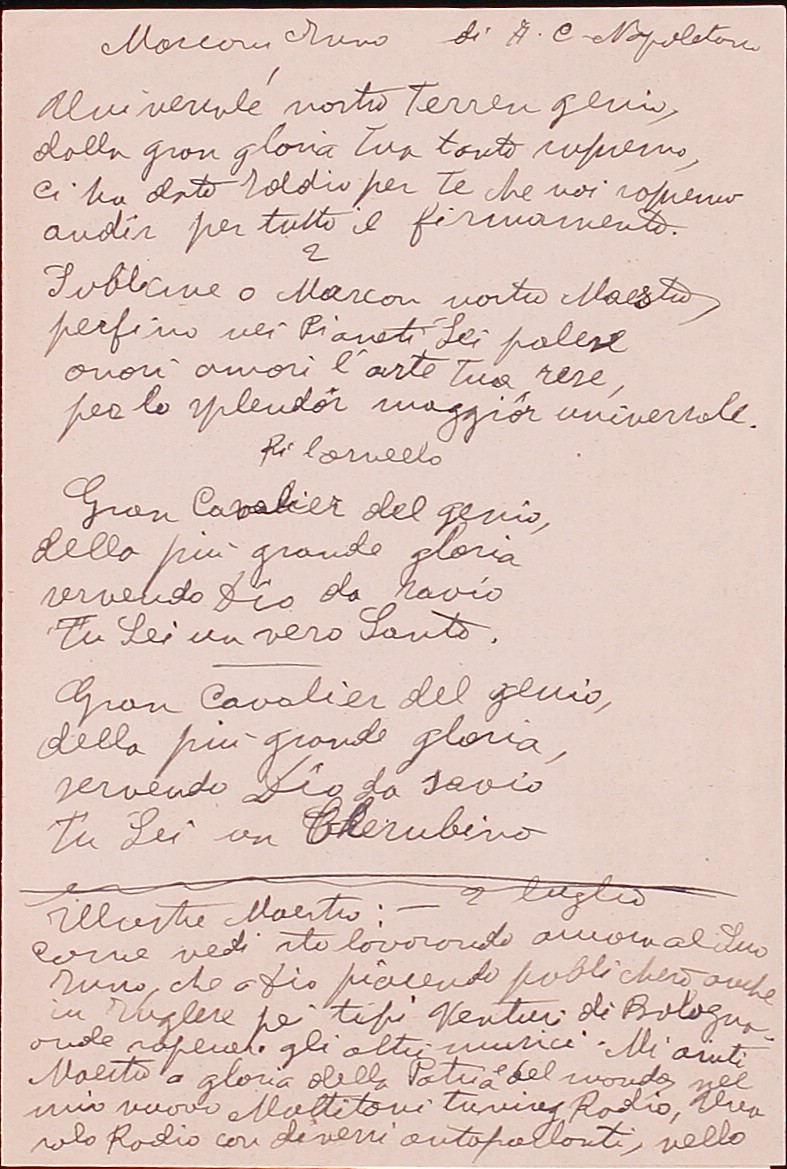 Marconi Inno di A. C. Napoletano
1
Universale nostro Terren genio,
dalla gran gloria Tua tanto supremo,
ci ha dato Raddio per Te che noi sapremo
andir per tutto il firmamento.
2
Sublime o Marconi nostro Maestro,
perfino nei Pianeti Sei palese
onori amori l'arte Tua rese,
per lo splendór maggiór universale.
Ritornello
Gran Cavalier del genio,
della più grande gloria
servendo Dio da savio
Tu Sei un vero Santo.
Gran Cavalier del genio,
della più grande gloria,
servendo Dio da savio
Tu Sei un Cherubino
2 luglio
Illustre Maestro: —
come vedi sto lavorando ancora al Suo
Inno, che a Dio piacendo publicherò anche
in Inglese pei tipi Venturi di Bologna
onde sapere gli altri musici. Mi aiuti
Maestro a gloria della Patria e del mondo, nel
mio nuovo tuning Radio, Una
solo Radio con diversi autoparlanti, nello